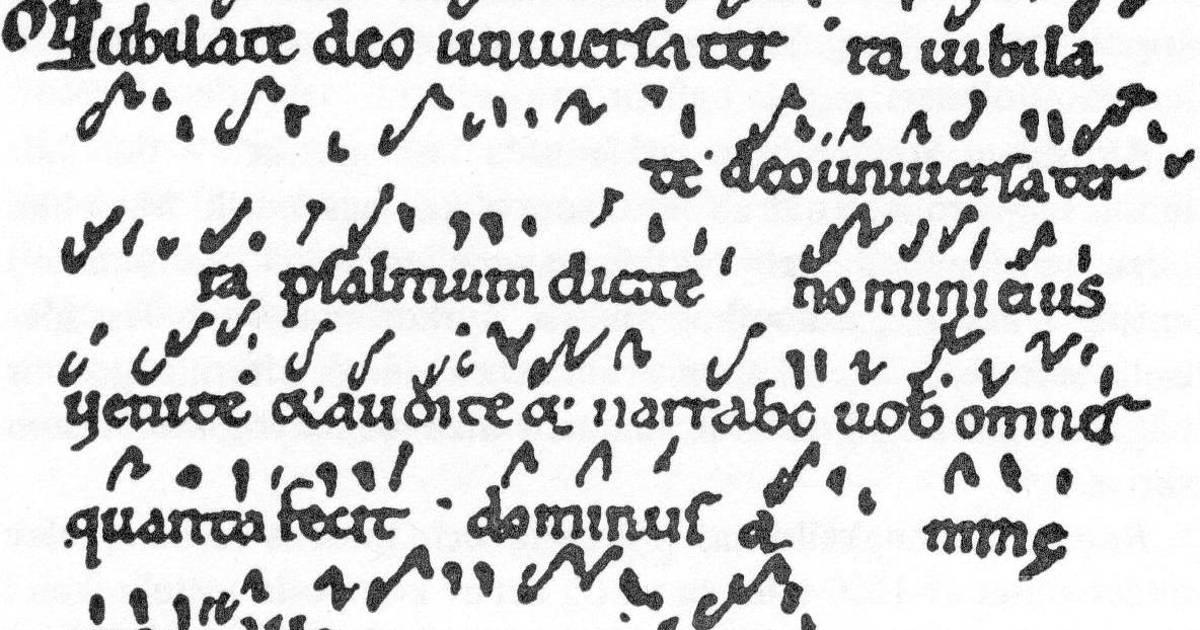 Off Iubilate deo uniuersa ter ra iubila
te deo uniuersa ter
ra psalmum dicite nomini eius
uenite & audite & narrabo uob omnes
quanta fecit dominus a nime